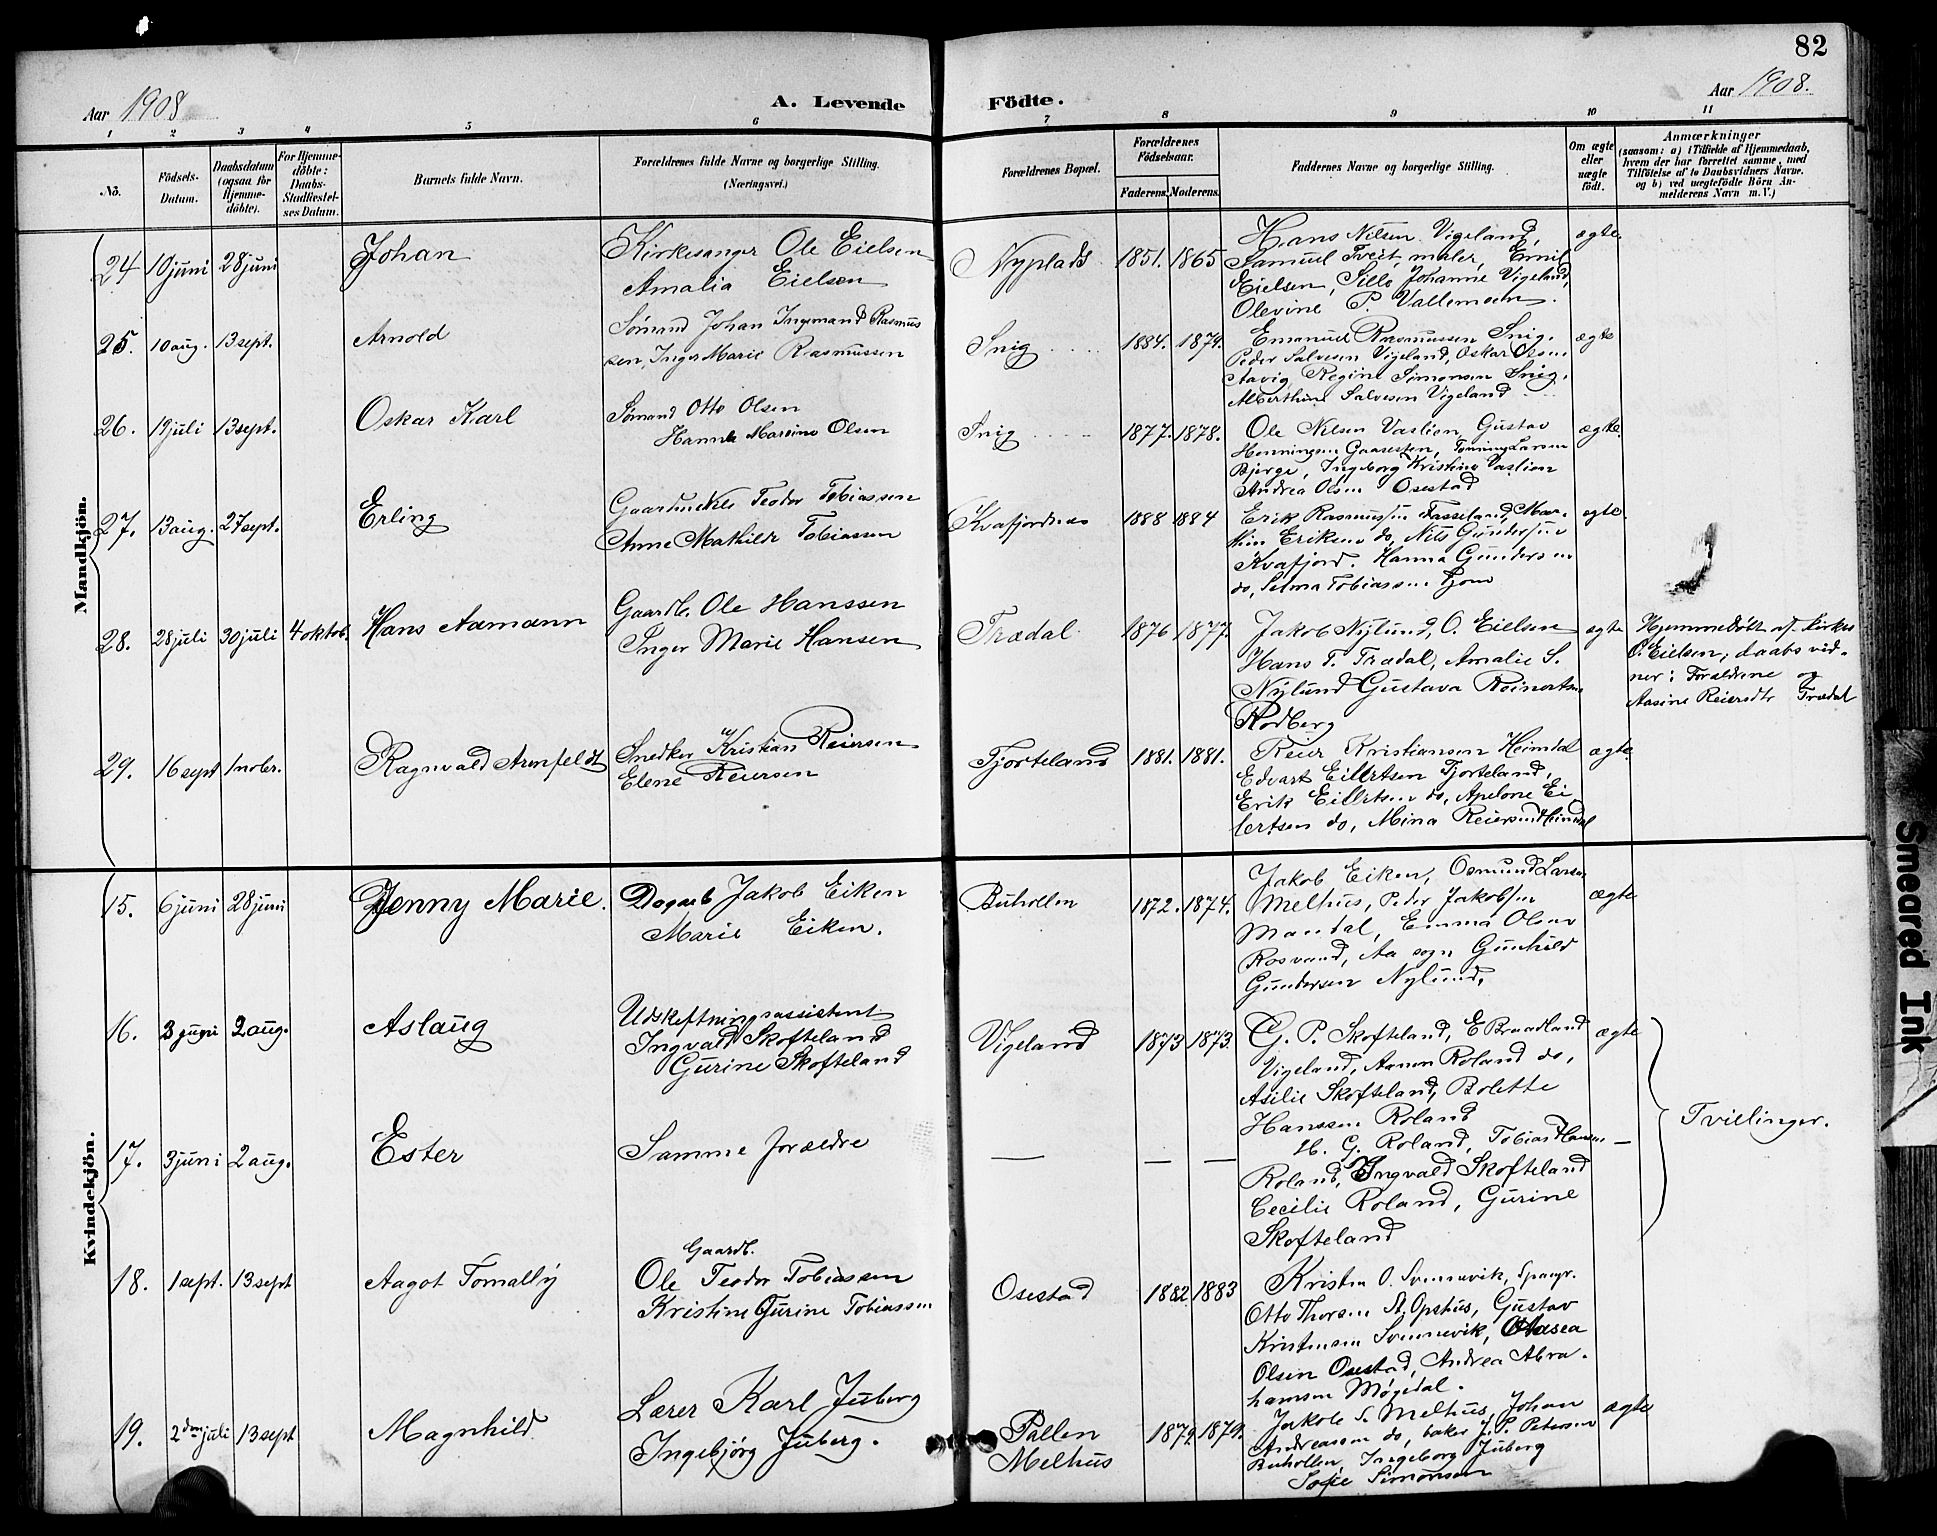 82
Aar 1908
A. Levende Födte.
Aar 1908.
1 2 3 4 5 6 7 8 9 10 11
No.
Födsels-Datum.
Daabsdatum (ogsaa for Hjemme-döbte).
For Hjemme-döbte: Daabs-Stadfæstel-ses Datum.
Barnets fulde Navn.
Forældrenes fulde Navne og borgerlige Stilling. (Næringsvei.)
Forældrenes Bopæl.
Forældrenes Födselsaar.
Faderens. Moderens.
Faddernes Navne og borgerlige Stilling.
Om ægte eller uægte födt.
Anmærkninger
(saasom: a) i Tilfælde af Hjemmedaab, hvem der har forrettet samme, med Tilföielse af to Daabsvidners Navne, og b) ved uægtefödte Börn Anmelderens Navn m. V.)
Mandkjön.
24 10 juni 28 juni Johan
Kirkesanger Ole Eielsen
Amalia Eielsen
Nyplads 1851. 1865
Hans Nilsen Vigeland,
Samuel Tveit, maler, Emil
Eielsen, Sille Johanne Vigeland,
Olevine P. Vallemoen.
ægte
25. 10 aug. 13 sept. Arnold
Sømand Johan Ingemand Rasmus
sen, Inger Marie Rasmussen
Snig 1884. 1879.
Emanuel Rasmussen Snig.
Peder Salvesen Vigeland, Oskar
Regine Simonsen Snig,
Alberthine Salvesen Vigeland
ægte
26. 19 juli 13 sept. Oskar Karl
Sømand Otto Olsen
Hanna Marine Olsen
Snig 1877. 1878.
Ole Nilsen Vaslien, Gustav
Henningsen Gaasesten, Tønning Larsen
Bjerge, Ingeborg Kristine Vaslien
Andrea Olsen Osestad
ægte.
27. 13 aug. 27 sept. Erling
Teodor Tobiassen
Anne Mathilde Tobiassen
Kvafjordnes 1888 1884
Erik Rasmussen Fasseland, Mar-
thin Eriksen do, Nils Gundersen
Kvafjord. Hanna Gundersen
do, Selma Tobiassen Gjom
ægte.
28. 28 juli 30 juli 4 oktob. Hans Aamann
Gaardb. Ole Hanssen
Inger Marie Hansen
Trædal 1876 1877.
Jakob Nylund, O. Eielsen
Hans T. Trædal, Amalie S.
Nylund Gustava Reinertsen
Rødberg
ægte
Hjemmedöbt af kirkes
O. Eielsen; daabsvid-
ner: Forældrene og
Aasine Reiersdtr Trædal
29. 16 sept 1 nobr. Ragnvald Arnfeldt
Snedker Kristian Reiersen
Elene Reiersen
Fjorteland 1881. 1881.
Reier Kristiansen Heimdal
Edvart Eilertsen Fjorteland,
Erik Eilertsen do, Apelone Ei
lertsen do, Mina Reiersen Heimdal
ægte.
Kvindekjön.
15. 6 juni 28 juni Jenny Marie.
Dagarb Jakob Eiken
Marie Eiken.
Buhollen 1872. 1874.
Jakob Eiken, Osmund Larsen
Melhus, Peder Jakobsen
Mandal, Emma Olsen
Rosvand, Aa sogn Gunhild
Gundersen Nylund,
ægte
16. 3 juni 2 aug. Aslaug
Udskiftningsassistent
Ingvald Skofteland
Gurine Skofteland
Vigeland 1873 1873.
G. P. Skofteland, E Braadland
Vigeland, Aanen Roland do,
Asilie Skofteland, Bolette
Hanssen Roland
ægte
17. 3 juni 2 aug. Ester
Samme forældre
— — —
H. G. Roland, Tobias Hansen
Roland, Ingvald Skofteland
Cecilie Roland, Gurine
Skofteland
—
Tvillinger.
18. 1 sept. 13 sept Aagot Tomally
Gaardb.
Ole Teodor Tobiassen
Kristine Gurine Tobiassen
Osestad 1882 1883
Kristen O. Svennevik, Spangr.
Otto Thorsen St. Opshus, Gustav
Kristensen Svennevik, Aasea
Olsen Osestad, Andrea Abra-
hamsen Møgedal.
19. 2den juli 13 sept Magnhild.
Lærer Karl Juberg
Ingebjørg Juberg.
Pallen
Melhus
1879 1879.
Jakob S. Melhus, Johan
Andreassen do, baker J. P. Petersen
Buhollen, Ingeborg Juberg
Sofie Simonsen
ægte
Smeared Ink